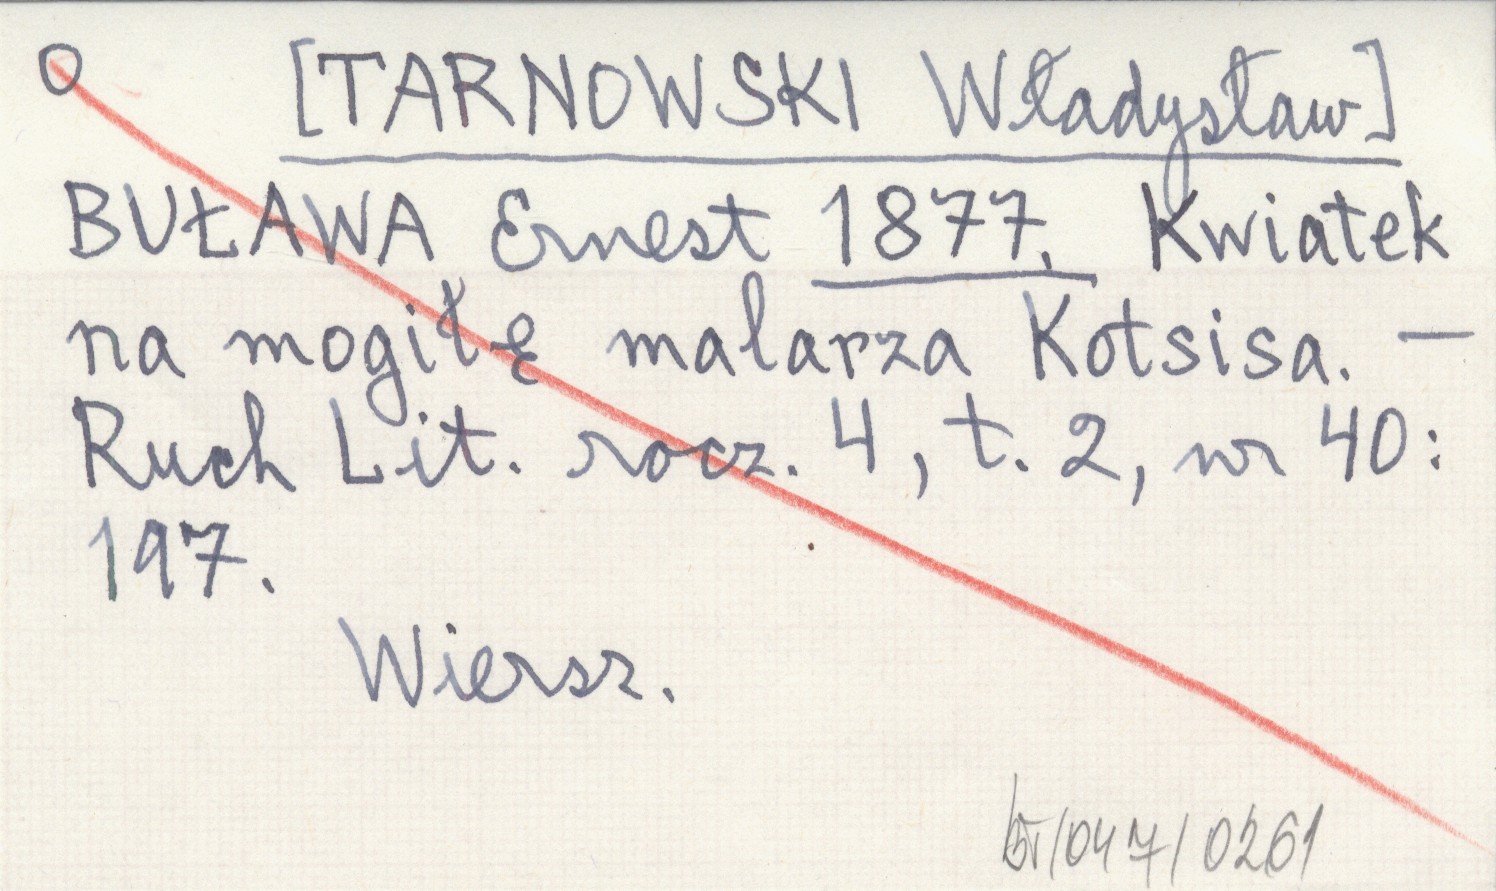 O [TARNOWSKI Władysław]
BUŁAWA Ernest 1877. Kwiatek
na mogiłę malarza Kotsisa. —
Ruch Lit. rocz. 4, t. 2, nr 40:
197.
Wiersz.
/047/0261